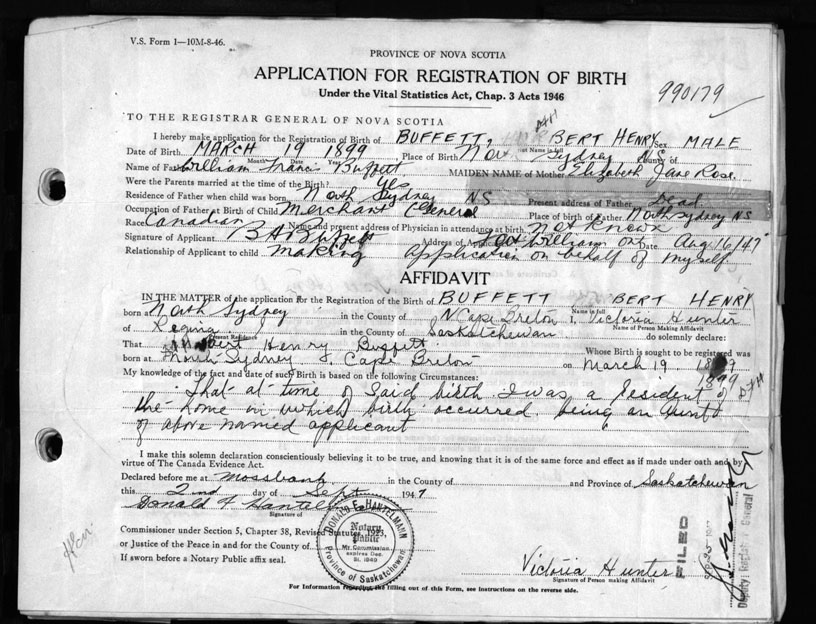 V.S. Form 1—10M-8-46.
PROVINCE OF NOVA SCOTIA
APPLICATION FOR REGISTRATION OF BIRTH
Under the Vital Statistics Act, Chap. 3 Acts 1946
990179
TO THE REGISTRAR GENERAL OF NOVA SCOTIA
I hereby make application for the Registration of Birth of BUFFETT, BERT HENRY Sex MALE
Date of Birth MARCH 19 1899 Place of Birth Nor Sydney NS
Month Date Year
Name of Father William Francis Buffett MAIDEN NAME of Mother Elizabeth Jane Rose
Were the Parents married at the time of the Birth? Yes
Residence of Father when child was born North Sydney NS Present address of Father Dead
Occupation of Father at Birth of Child Merchant General Place of birth of Father North Sydney NS
Race Canadian Name and present address of Physician in attendance at birth not known
Signature of Applicant B H Buffett Address of Fort William Ont Date Aug 16/47
Relationship of Applicant to child making application on behalf of myself
AFFIDAVIT
IN THE MATTER of the application for the Registration of the Birth of BUFFETT BERT HENRY
Name in full
born at North Sydney in the County of Cape Breton I, Victoria Hunter
Name of Person Making Affidavit
of Regina in the County of Saskatchewan do solemnly declare:
Present Residence
That Bert Henry Buffett Whose Birth is sought to be registered was
born at North Sydney Cape Breton on March 19
My knowledge of the fact and date of such Birth is based on the following Circumstances: 1899
That at time of said birth I was a resident of
the home in which birth occurred being an Aunt
of above named applicant
I make this solemn declaration conscientiously believing it to be true, and knowing that it is of the same force and effect as if made under oath and by
virtue of The Canada Evidence Act.
Declared before me at Mossbank in the County of and Province of Saskatchewan
this 2nd day of Sept 1947
Donald F Hantel
Signature of
Commissioner under Section 5, Chapter 38, Revised Statutes, 1923,
or Justice of the Peace in and for the County of
If sworn before a Notary Public affix seal.
DONALD F. HANTELMANN
Notary
Public
My Commission
expires Dec.
31, 1949
Province of Saskatchewan
Victoria Hunter
Signature of Person making Affidavit
FILED
Deputy Registrar General
For Information regarding the filling out of this Form, see instructions on the reverse side.